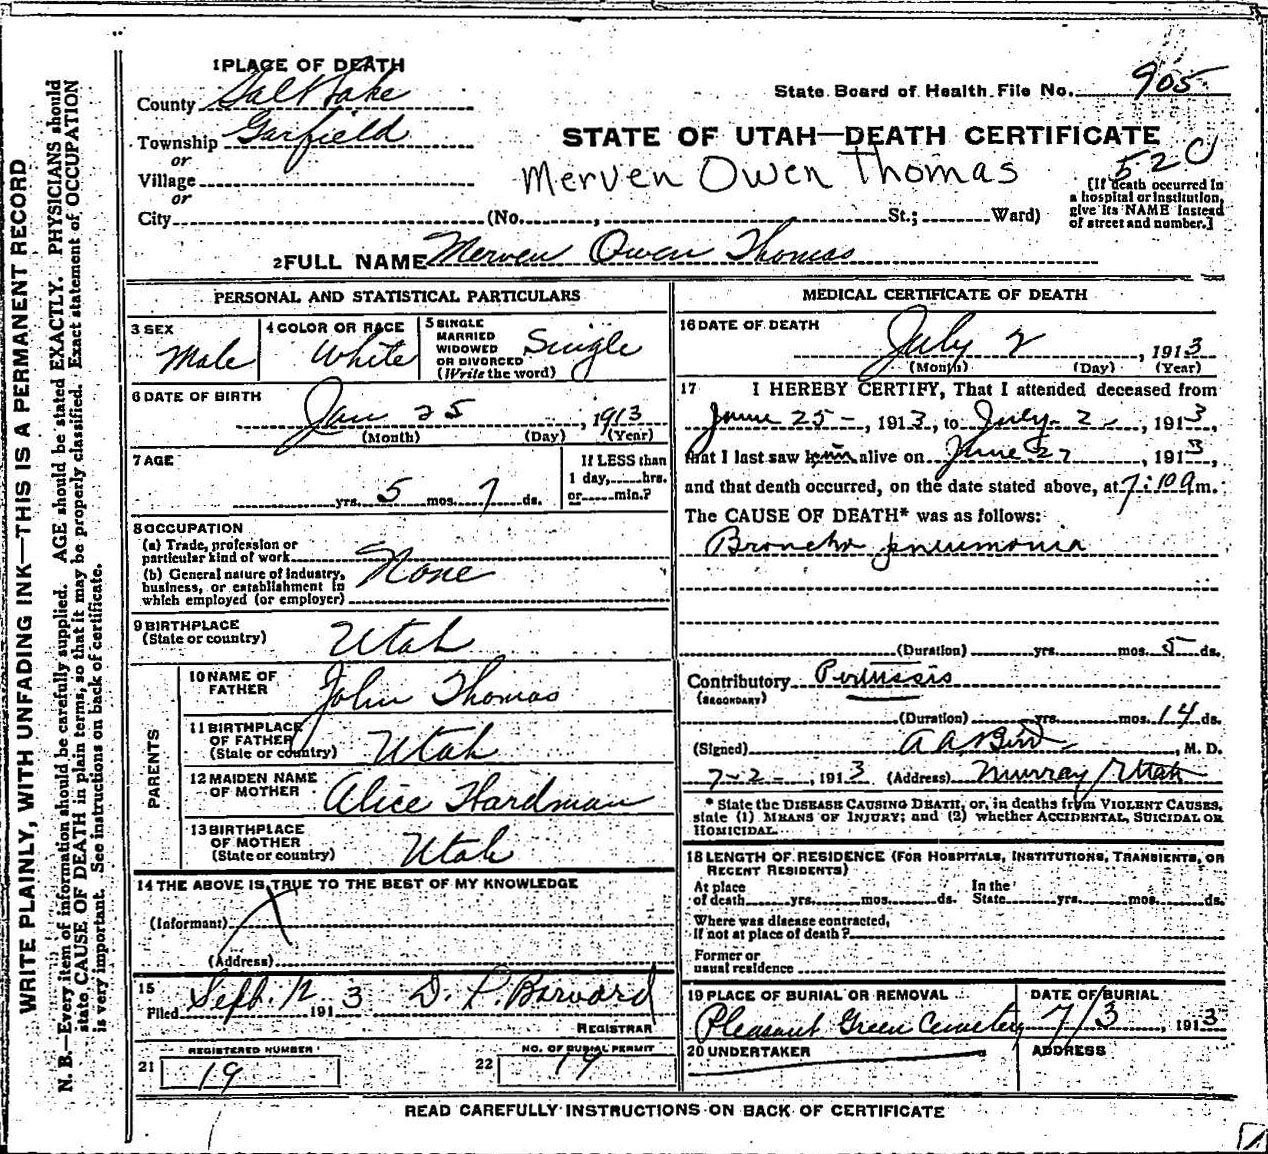 WRITE PLAINLY, WITH UNFADING INK—THIS IS A PERMANENT RECORD
N. B.—Every item of information should be carefully supplied. AGE should be stated EXACTLY. PHYSICIANS should
state CAUSE OF DEATH in plain terms, so that it may be properly classified. Exact statement of OCCUPATION
is very important. See instructions on back of certificate.
1 PLACE OF DEATH
County Salt Lake
State Board of Health File No. 905
Township Garfield
STATE OF UTAH—DEATH CERTIFICATE
or
Village
Merven Owen Thomas
52C
or
City (No. , St.; Ward)
[If death occurred in
a hospital or institution,
give its NAME instead
of street and number.]
2 FULL NAME Merven Owen Thomas
PERSONAL AND STATISTICAL PARTICULARS
3 SEX
Male
4 COLOR OR RACE
White
5 SINGLE
MARRIED
WIDOWED
OR DIVORCED
(Write the word)
Single
6 DATE OF BIRTH
Jan 25, 1913
(Month) (Day) (Year)
7 AGE
yrs. 5 mos. 7 ds.
If LESS than
1 day, hrs.
or min.?
8 OCCUPATION
(a) Trade, profession or
particular kind of work
None
(b) General nature of industry,
business, or establishment in
which employed (or employer)
9 BIRTHPLACE
(State or country)
Utah
PARENTS
10 NAME OF
FATHER
John Thomas
11 BIRTHPLACE
OF FATHER
(State or country)
Utah
12 MAIDEN NAME
OF MOTHER
Alice Hardman
13 BIRTHPLACE
OF MOTHER
(State or country)
Utah
14 THE ABOVE IS TRUE TO THE BEST OF MY KNOWLEDGE
(Informant) X
(Address)
15
Filed Sept. 12 1913 D. P. Barnard
REGISTRAR
REGISTERED NUMBER
21 19
NO. OF BURIAL PERMIT
22 19
MEDICAL CERTIFICATE OF DEATH
16 DATE OF DEATH
July 2, 1913
(Month) (Day) (Year)
17 I HEREBY CERTIFY, That I attended deceased from
June 25-, 1913, to July 2, 1913,
that I last saw him alive on June 27, 1913,
and that death occurred, on the date stated above, at 7:10 a m.
The CAUSE OF DEATH* was as follows:
Broncho pneumonia
(Duration) yrs. mos. 5 ds.
Contributory Pertussis
(SECONDARY)
(Duration) yrs. mos. 14 ds.
(Signed) A A Bird, M. D.
7-2-, 1913 (Address) Murray Utah
* State the DISEASE CAUSING DEATH, or, in deaths from VIOLENT CAUSES,
state (1) MEANS OF INJURY; and (2) whether ACCIDENTAL, SUICIDAL OR
HOMICIDAL.
18 LENGTH OF RESIDENCE (FOR HOSPITALS, INSTITUTIONS, TRANSIENTS, OR
RECENT RESIDENTS)
At place
of death yrs. mos. ds.
In the
State yrs. mos. ds.
Where was disease contracted,
If not at place of death?
Former or
usual residence
19 PLACE OF BURIAL OR REMOVAL
Pleasant Green Cemetery
DATE OF BURIAL
7/3, 1913
20 UNDERTAKER
ADDRESS
READ CAREFULLY INSTRUCTIONS ON BACK OF CERTIFICATE